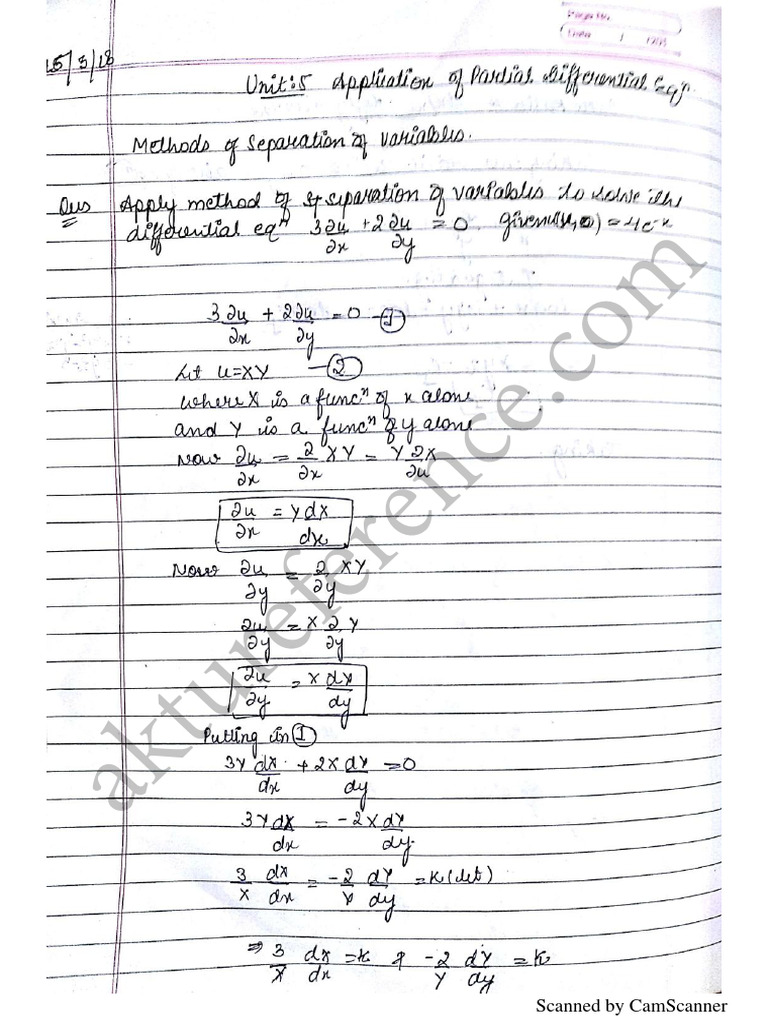 Page No.
Date / /20
15/3/18
Unit:5 Application of Partial Differential Eqⁿ.
Methods of Separation of variables.
Ques Apply method of separation of variables to solve the
differential eqⁿ 3∂u/∂x + 2∂u/∂y = 0, given u(x,0) = 4e⁻ˣ
3∂u/∂x + 2∂u/∂y = 0 —①
Let u=XY —②
where X is a funcⁿ of x alone
and Y is a funcⁿ of y alone
Now ∂u/∂x = ∂/∂x XY = Y ∂X/∂u
∂u/∂x = Y dX/dx
Now ∂u/∂y = ∂/∂y XY
∂u/∂y = X ∂/∂y Y
∂u/∂y = X dY/dy
Putting in ①
3Y dX/dx + 2X dY/dy = 0
3Y dX/dx = -2X dY/dy
3/X dX/dx = -2/Y dY/dy = K (let)
⇒ 3/X dX/dx = K & -2/Y dY/dy = K
aktureference.com
Scanned by CamScanner